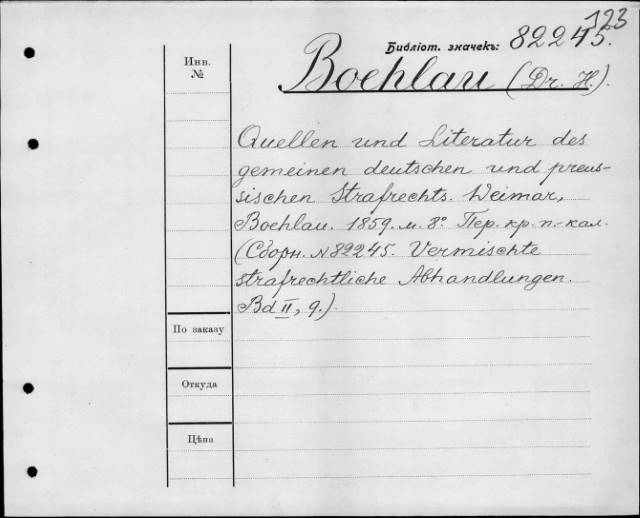 123
Библіот. значекъ: 82245.
Инв. №
Boehlau (Dr. H.).
Quellen und Literatur des
gemeinen deutschen und preus-
sischen Strafrechts. Weimar,
Boehlau. 1859. м. 8° Пер. кр. п.-кал.
(Сборн. № 82245. Vermischte
strafrechtliche Abhandlungen.
Bd II, 9.).
По заказу
Откуда
Цѣна